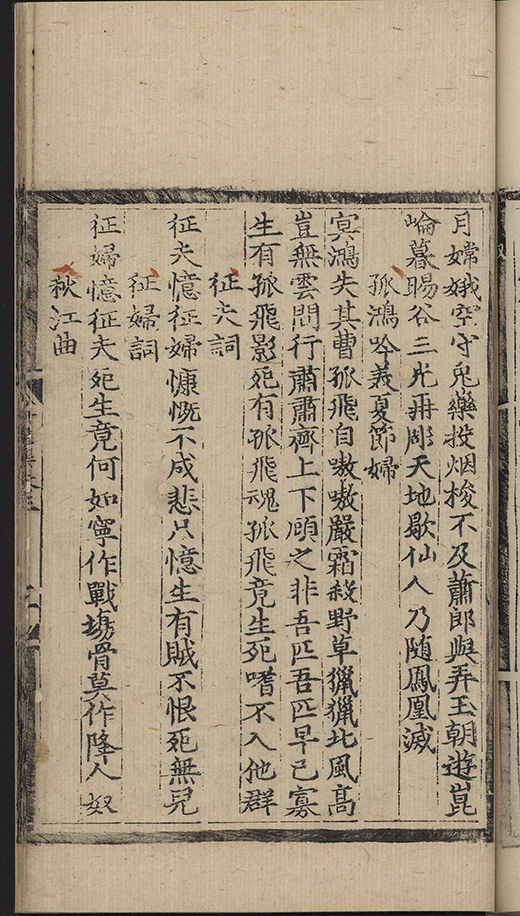 月嫦娥空守兔藥投烟梭不及蕭郎與弄玉朝遊崑
崘暮賜谷三光再彫天地歇仙人乃随鳳凰滅
孤鴻吟義夏節婦
冥鴻失其曹孤飛自嗷嗷嚴霜殺野草獵獵北風高
豈無雲間行肅肅齊上下顧之非吾匹吾匹早已寡
生有孤飛影死有孤飛魂孤飛竟生死嗜不入他群
征夫詞
征夫憶征婦慷慨不成悲只憶生有賊不恨死無兒
征婦詞
征婦憶征夫死生竟何如寧作戰塲骨莫作降人奴
秋江曲